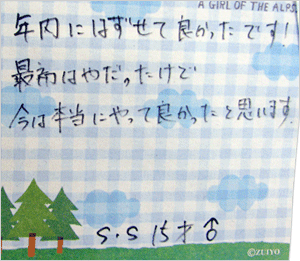 A GIRL OF THE ALPS
年内にはずせて良かったです!
最初はやだったけど
今は本当にやって良かったと思います
S.S 15才 ♂
©ZUIYO